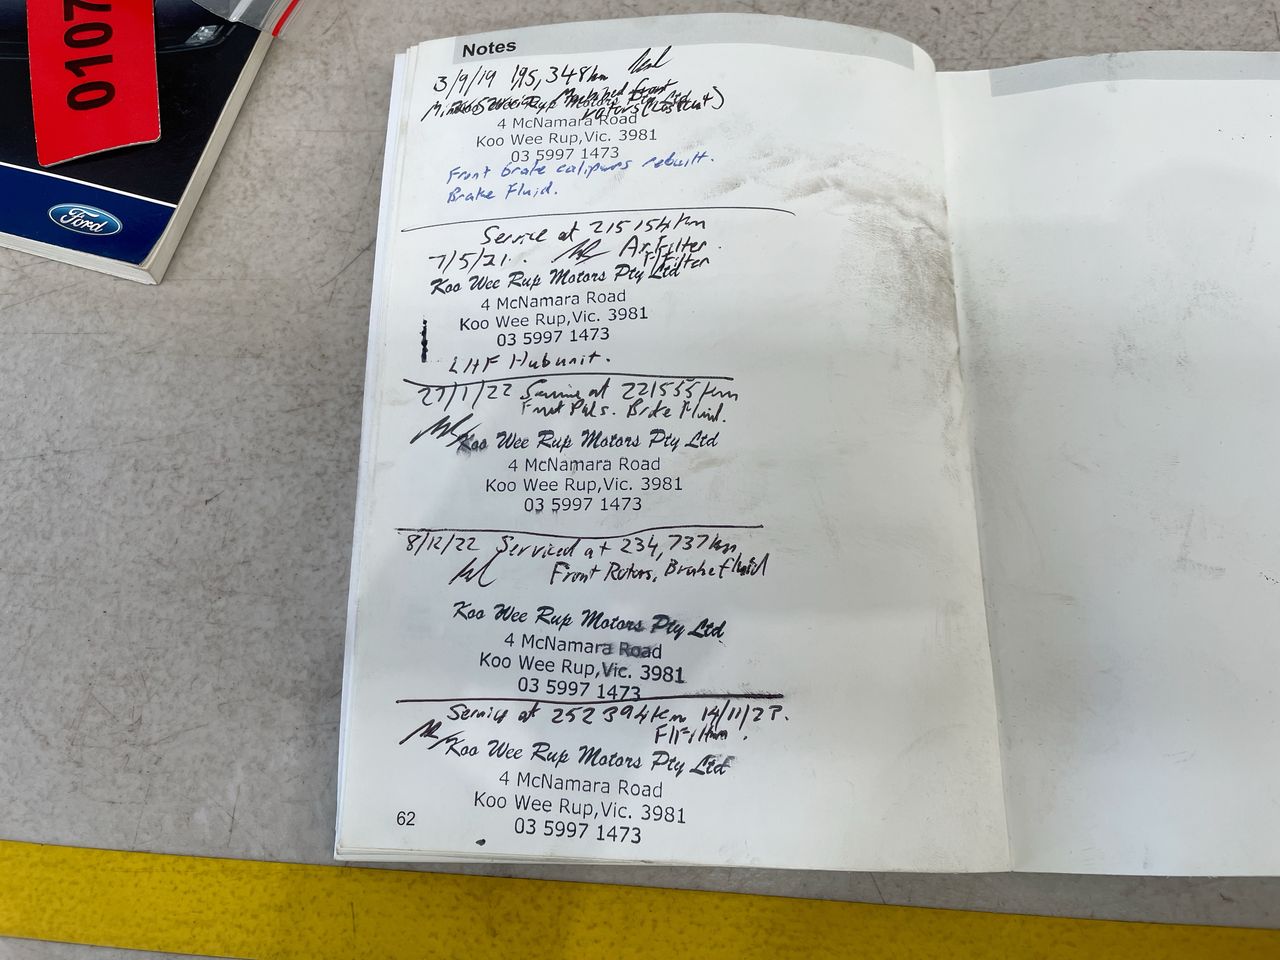 0107
Ford
Notes
3/9/19 195,348km
Machined front
Koo Wee Rup Motors Pty Ltd
rotors
4 McNamara Road
Koo Wee Rup,Vic. 3981
03 5997 1473
Front brake calipers rebuilt.
Brake Fluid.
Service at 215154km
7/5/21. Air Filter.
F/Filter
Koo Wee Rup Motors Pty Ltd
4 McNamara Road
Koo Wee Rup,Vic. 3981
03 5997 1473
LHF Hub unit.
27/1/22 Service at 221555km
Front Pads. Brake Fluid.
Koo Wee Rup Motors Pty Ltd
4 McNamara Road
Koo Wee Rup,Vic. 3981
03 5997 1473
8/12/22 Serviced at 234,737km
Front Rotors, Brake fluid
Koo Wee Rup Motors Pty Ltd
4 McNamara Road
Koo Wee Rup,Vic. 3981
03 5997 1473
Service at 252394km 14/11/23.
F/Filter.
Koo Wee Rup Motors Pty Ltd
4 McNamara Road
Koo Wee Rup,Vic. 3981
03 5997 1473
62